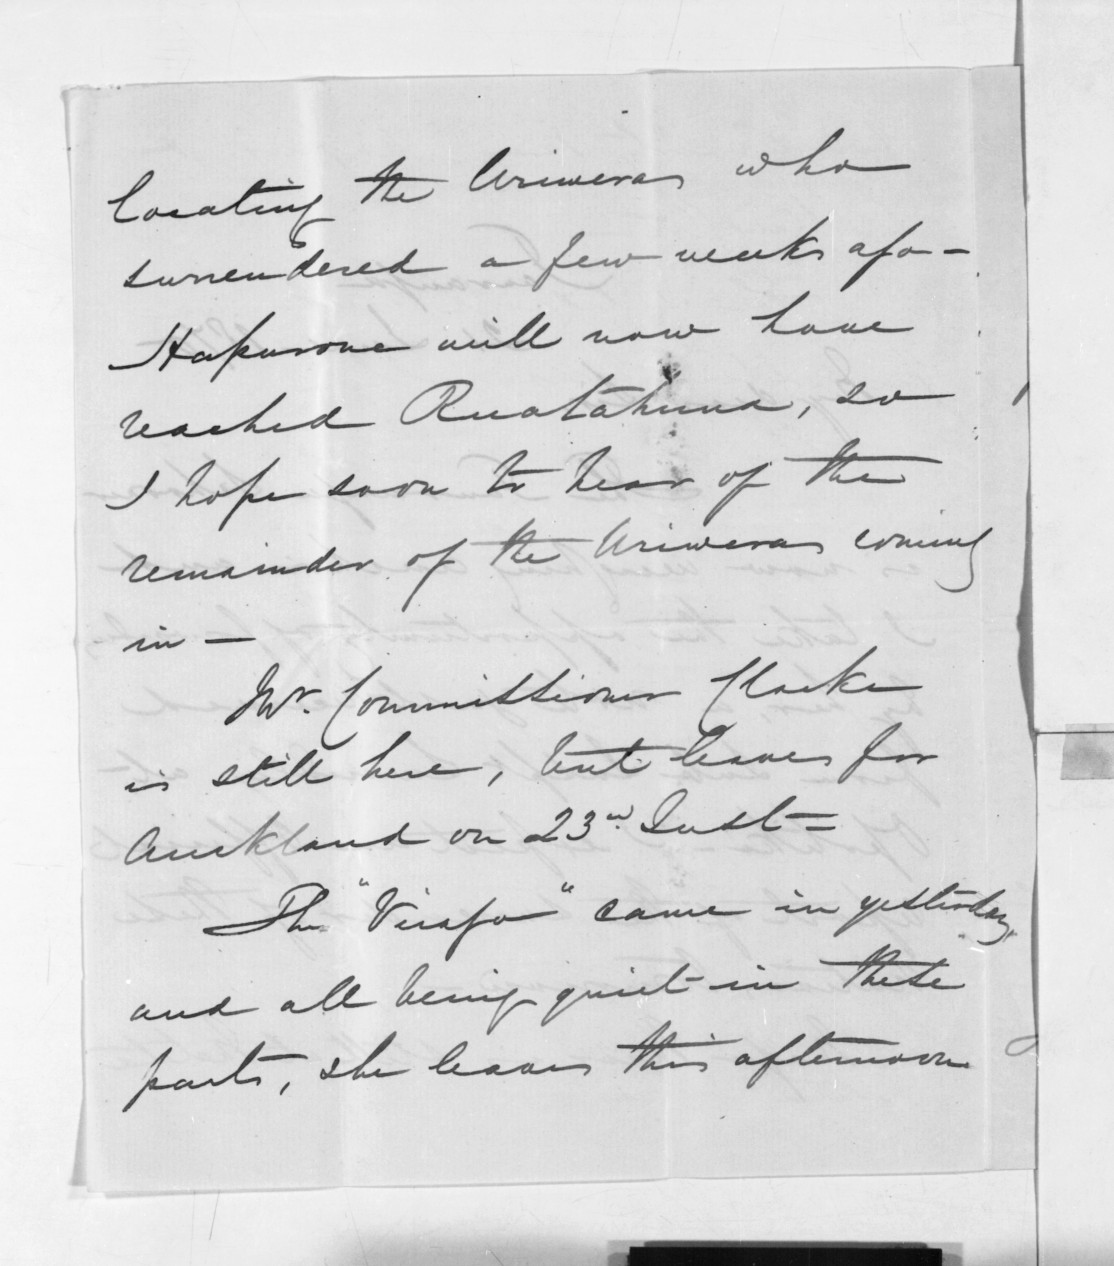 locating the Uriweras who
surrendered a few weeks ago -
Hapurona will now have
reached Ruatahuna, so
I hope soon to hear of the
remainder of the Uriweras coming
in -
Mr. Commissioner Clarke
is still here, but leaves for
Auckland on 23rd Inst =
The "Virago" came in yesterday,
and all being quiet in these
parts, she leaves this afternoon